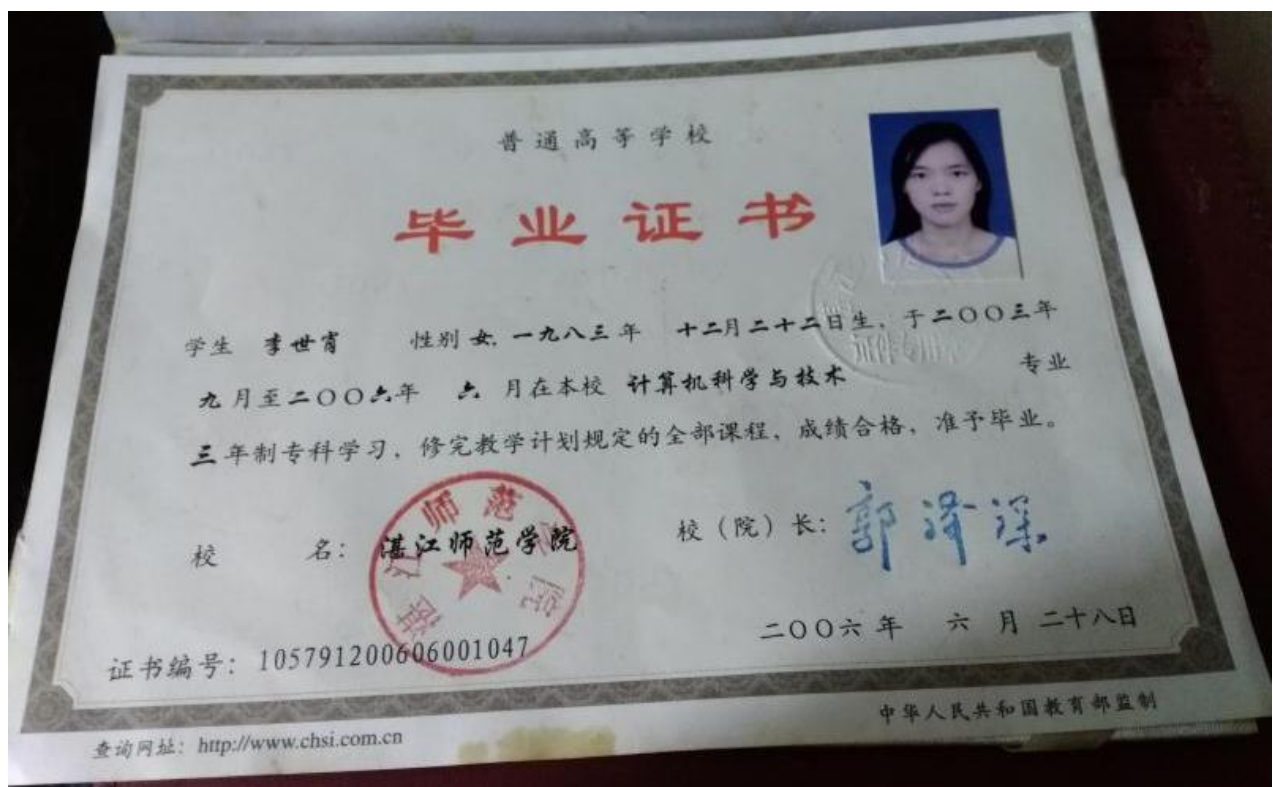 普通高等学校
毕业证书
学生 李世宵 性别 女, 一九八三年 十二月二十二日生, 于二〇〇三年
九月至二〇〇六年 六 月在本校 计算机科学与技术 专业
三年制专科学习, 修完教学计划规定的全部课程, 成绩合格, 准予毕业。
校 名: 湛江师范学院 校(院)长: 郭泽深
湛江师范学院
二〇〇六年 六 月 二十八日
证书编号: 105791200606001047
中华人民共和国教育部监制
查询网址: http://www.chsi.com.cn